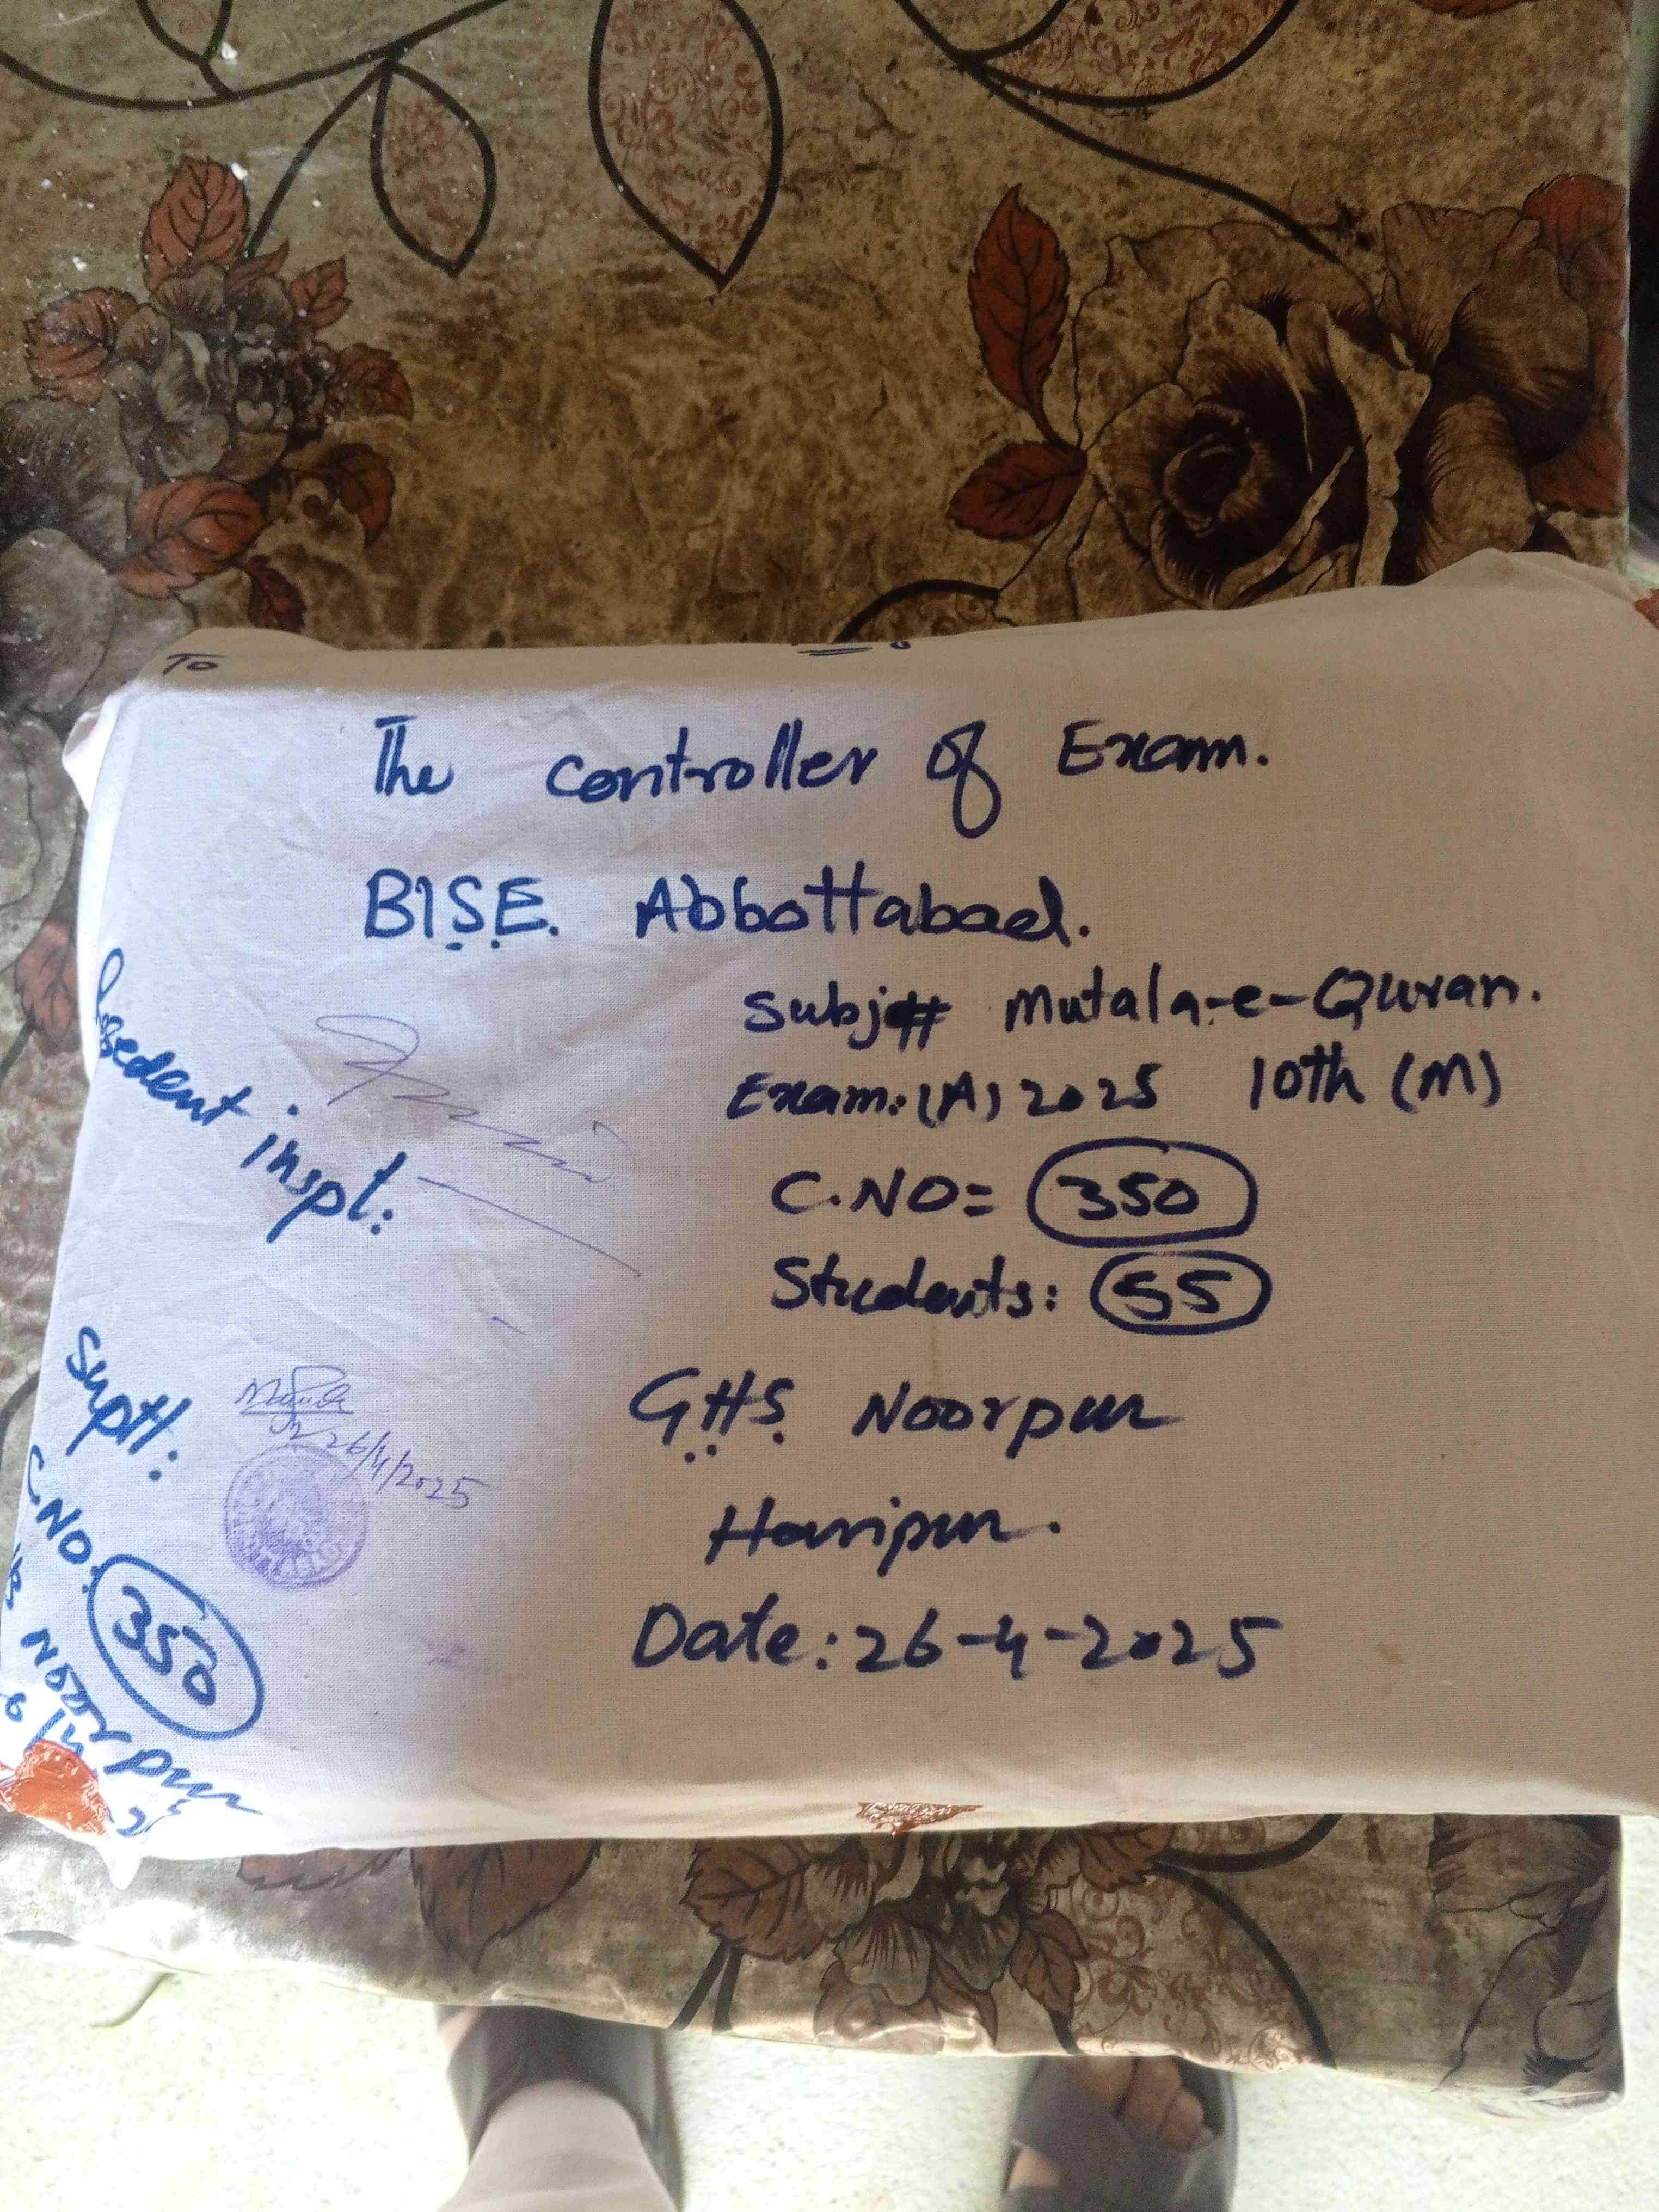 To
The Controller of Exam.
B.I.S.E. Abbottabad.
Subj# Mutala-e-Quran.
Exam:(A) 2025 10th (M)
C.NO= 350
Students: 55
G.H.S. Noorpur
Haripur.
Date: 26-4-2025
inspt:
Suptt:
26/4/2025
C.NO. 350
Noorpur